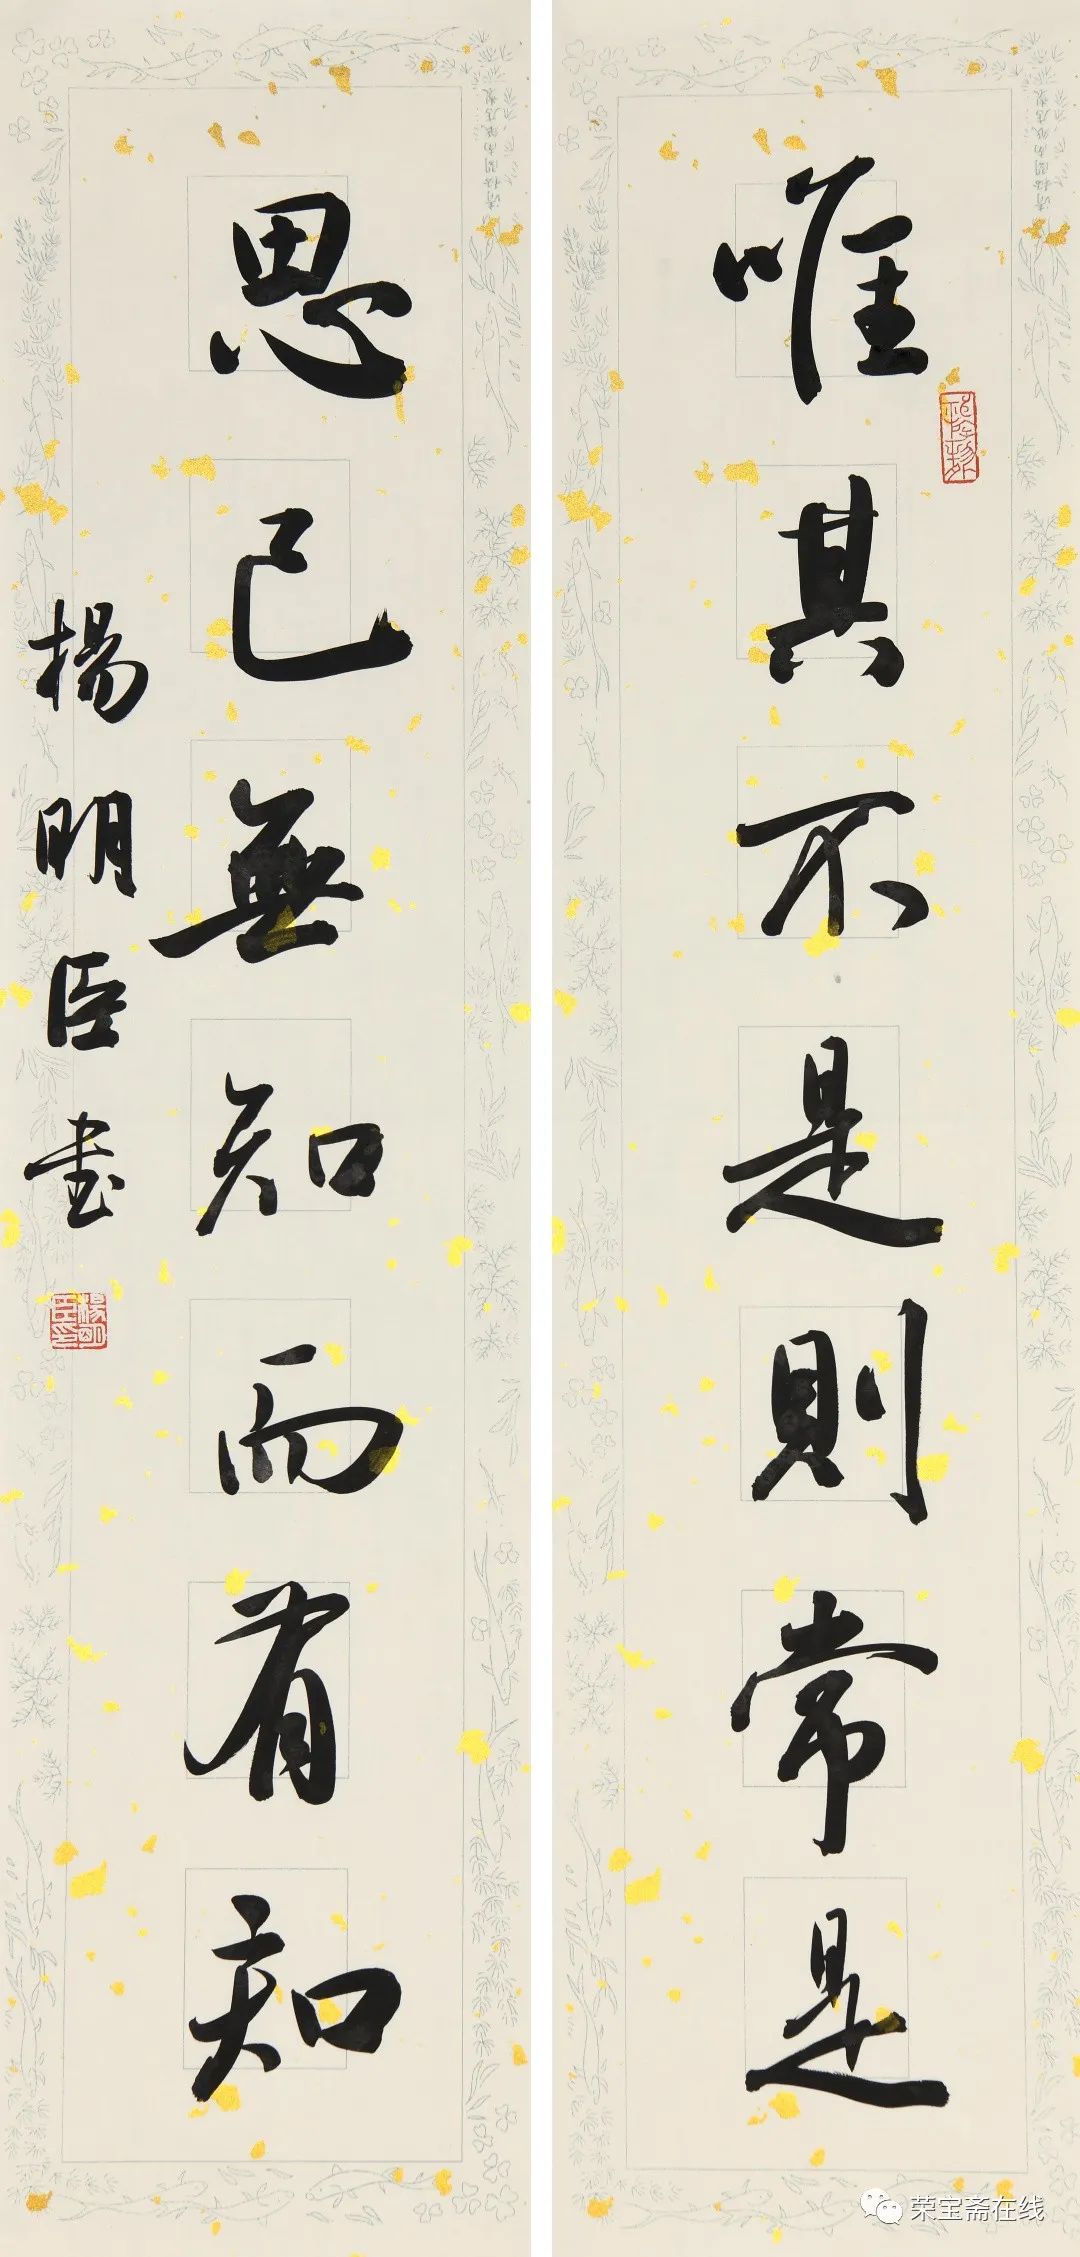 唯其不是則常是
思己無知而有知
楊明臣書
楊明臣印
荣宝斋在线